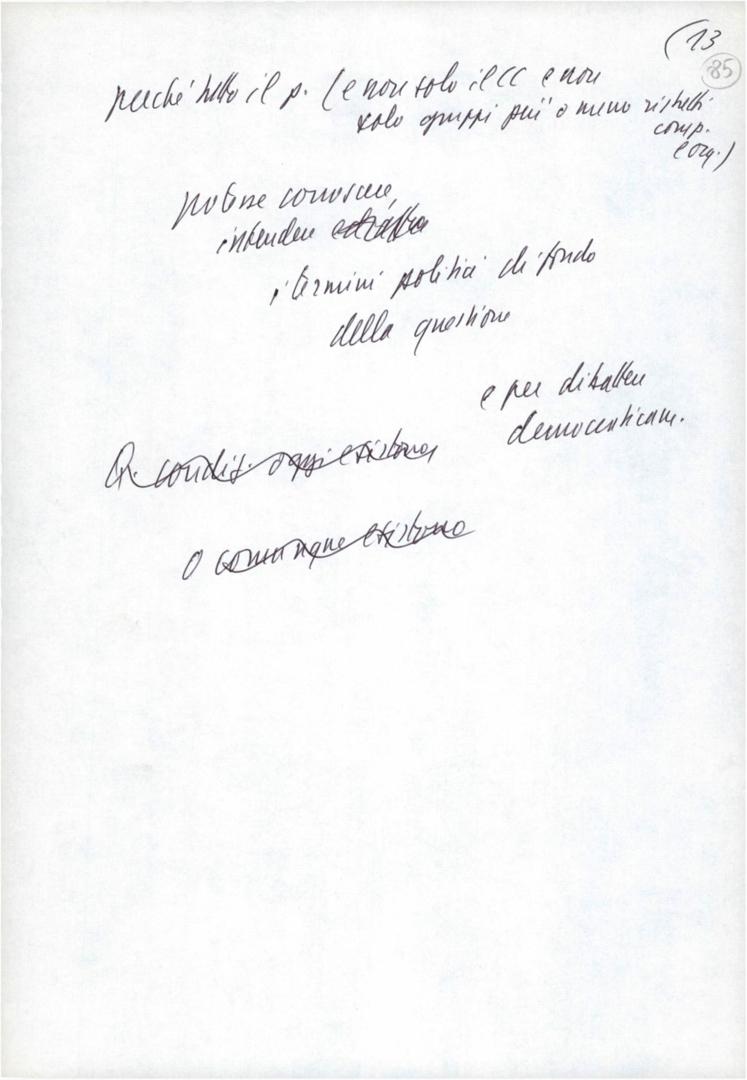 (13
85
perché tutto il p. (e non solo il CC e non
solo gruppi più o meno ristretti
comp.
e org.)
potesse conoscere,
intendere
i termini politici di fondo
della questione
e per dibattere
democraticam.
Q. condiz. oggi esistono
O comunque esistono